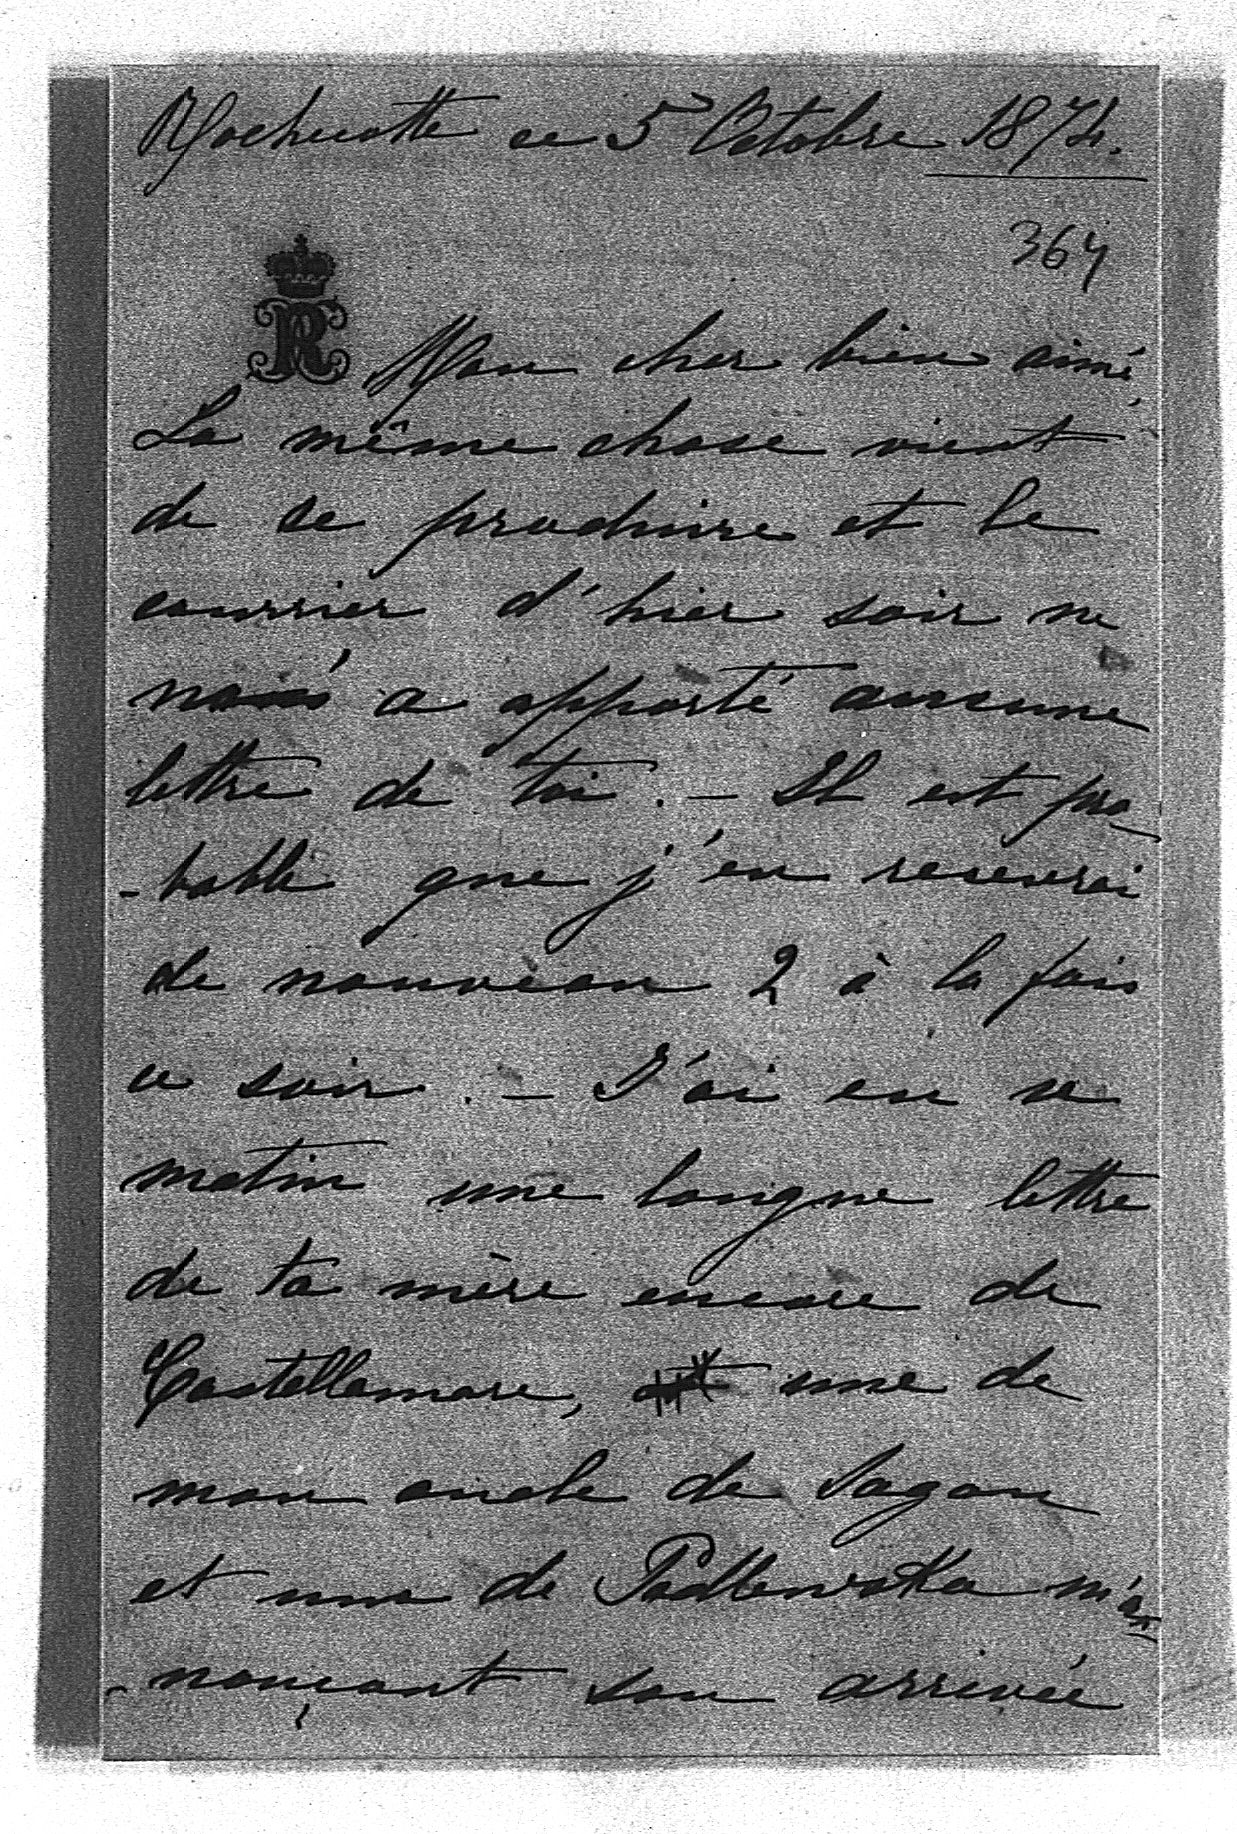 Rochecotte ce 5 Octobre 1874.
364
R Mon cher bien aimé,
La même chose vient
de se produire et le
courrier d'hier soir ne
m'a apporté aucune
lettre de toi. – Il est pro
-bable que j'en recevrai
de nouveau 2 à la fois
ce soir. – J'ai eu ce
matin une longue lettre
de ta mère encore de
Castellamare, une de
mon oncle de Sagan
et une de Podlewska m'an
-nonçant son arrivée